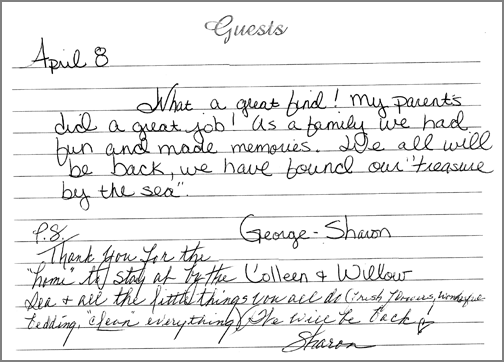 Guests
April 8
What a great find! My parents
did a great job! As a family we had
fun and made memories. We all will
be back, we have found our "treasure
by the sea".
George - Sharon
P.S.
Thank you for the
"home" to stay at by the Colleen & Willow
sea & all the little things you all do (fresh flowers, wonderful
bedding, "clean" everything) We will be back
Sharon